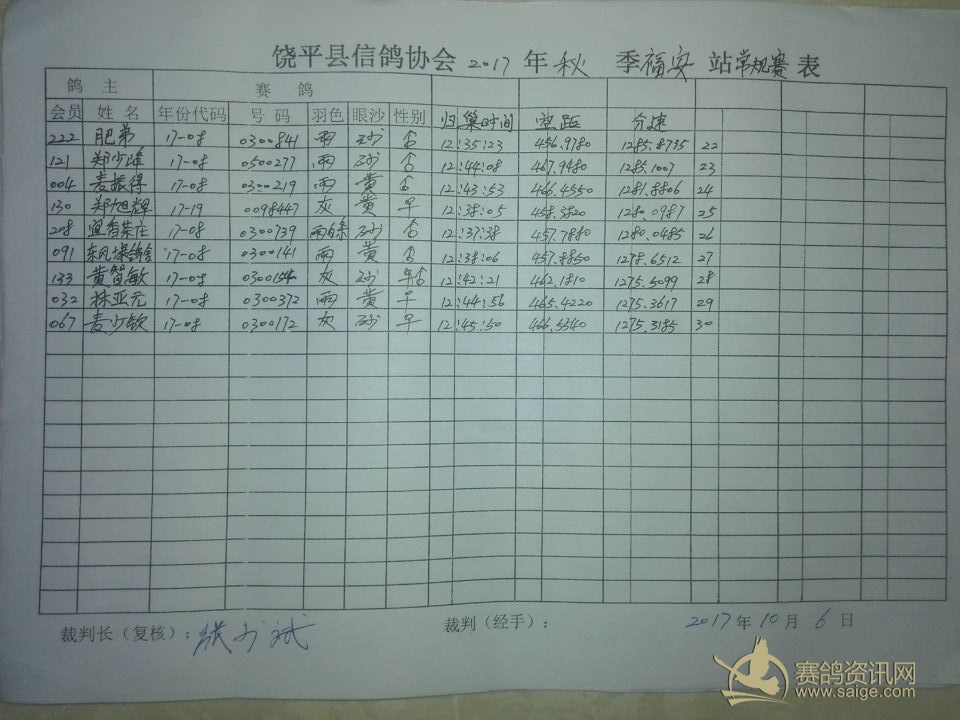 饶平县信鸽协会 2017 年 秋 季 福安 站 常规赛 表
鸽主 赛鸽
会员 姓名 年份代码 号码 羽色 眼沙 性别 归巢时间 空距 分速
222 肥弟 17-08 0300841 雨 砂 ♂ 12:35:23 456.9780 1285.8735 22
121 郑少峰 17-08 0500277 雨 砂 ♂ 12:44:08 467.9480 1285.1007 23
004 麦振得 17-08 0300219 雨 黄 ♂ 12:43:53 466.4550 1281.8806 24
130 郑旭辉 17-19 0098447 灰 黄 ♀ 12:38:05 458.3820 1280.0987 25
208 17-08 0300739 雨白条 砂 ♂ 12:37:38 457.7880 1280.0485 26
091 17-08 0300141 雨 黄 ♂ 12:38:06 457.8850 1278.6512 27
133 黄笃敏 17-08 灰 砂 12:42:21 462.1810 1275.5099 28
032 林亚元 17-08 0300372 雨 黄 ♀ 12:44:56 465.4220 1275.3617 29
067 麦少钦 17-08 0300172 灰 砂 ♀ 12:45:50 466.5540 1275.3185 30
裁判长（复核）： 裁判（经手）： 2017 年 10 月 6 日
赛鸽资讯网
www.saige.com